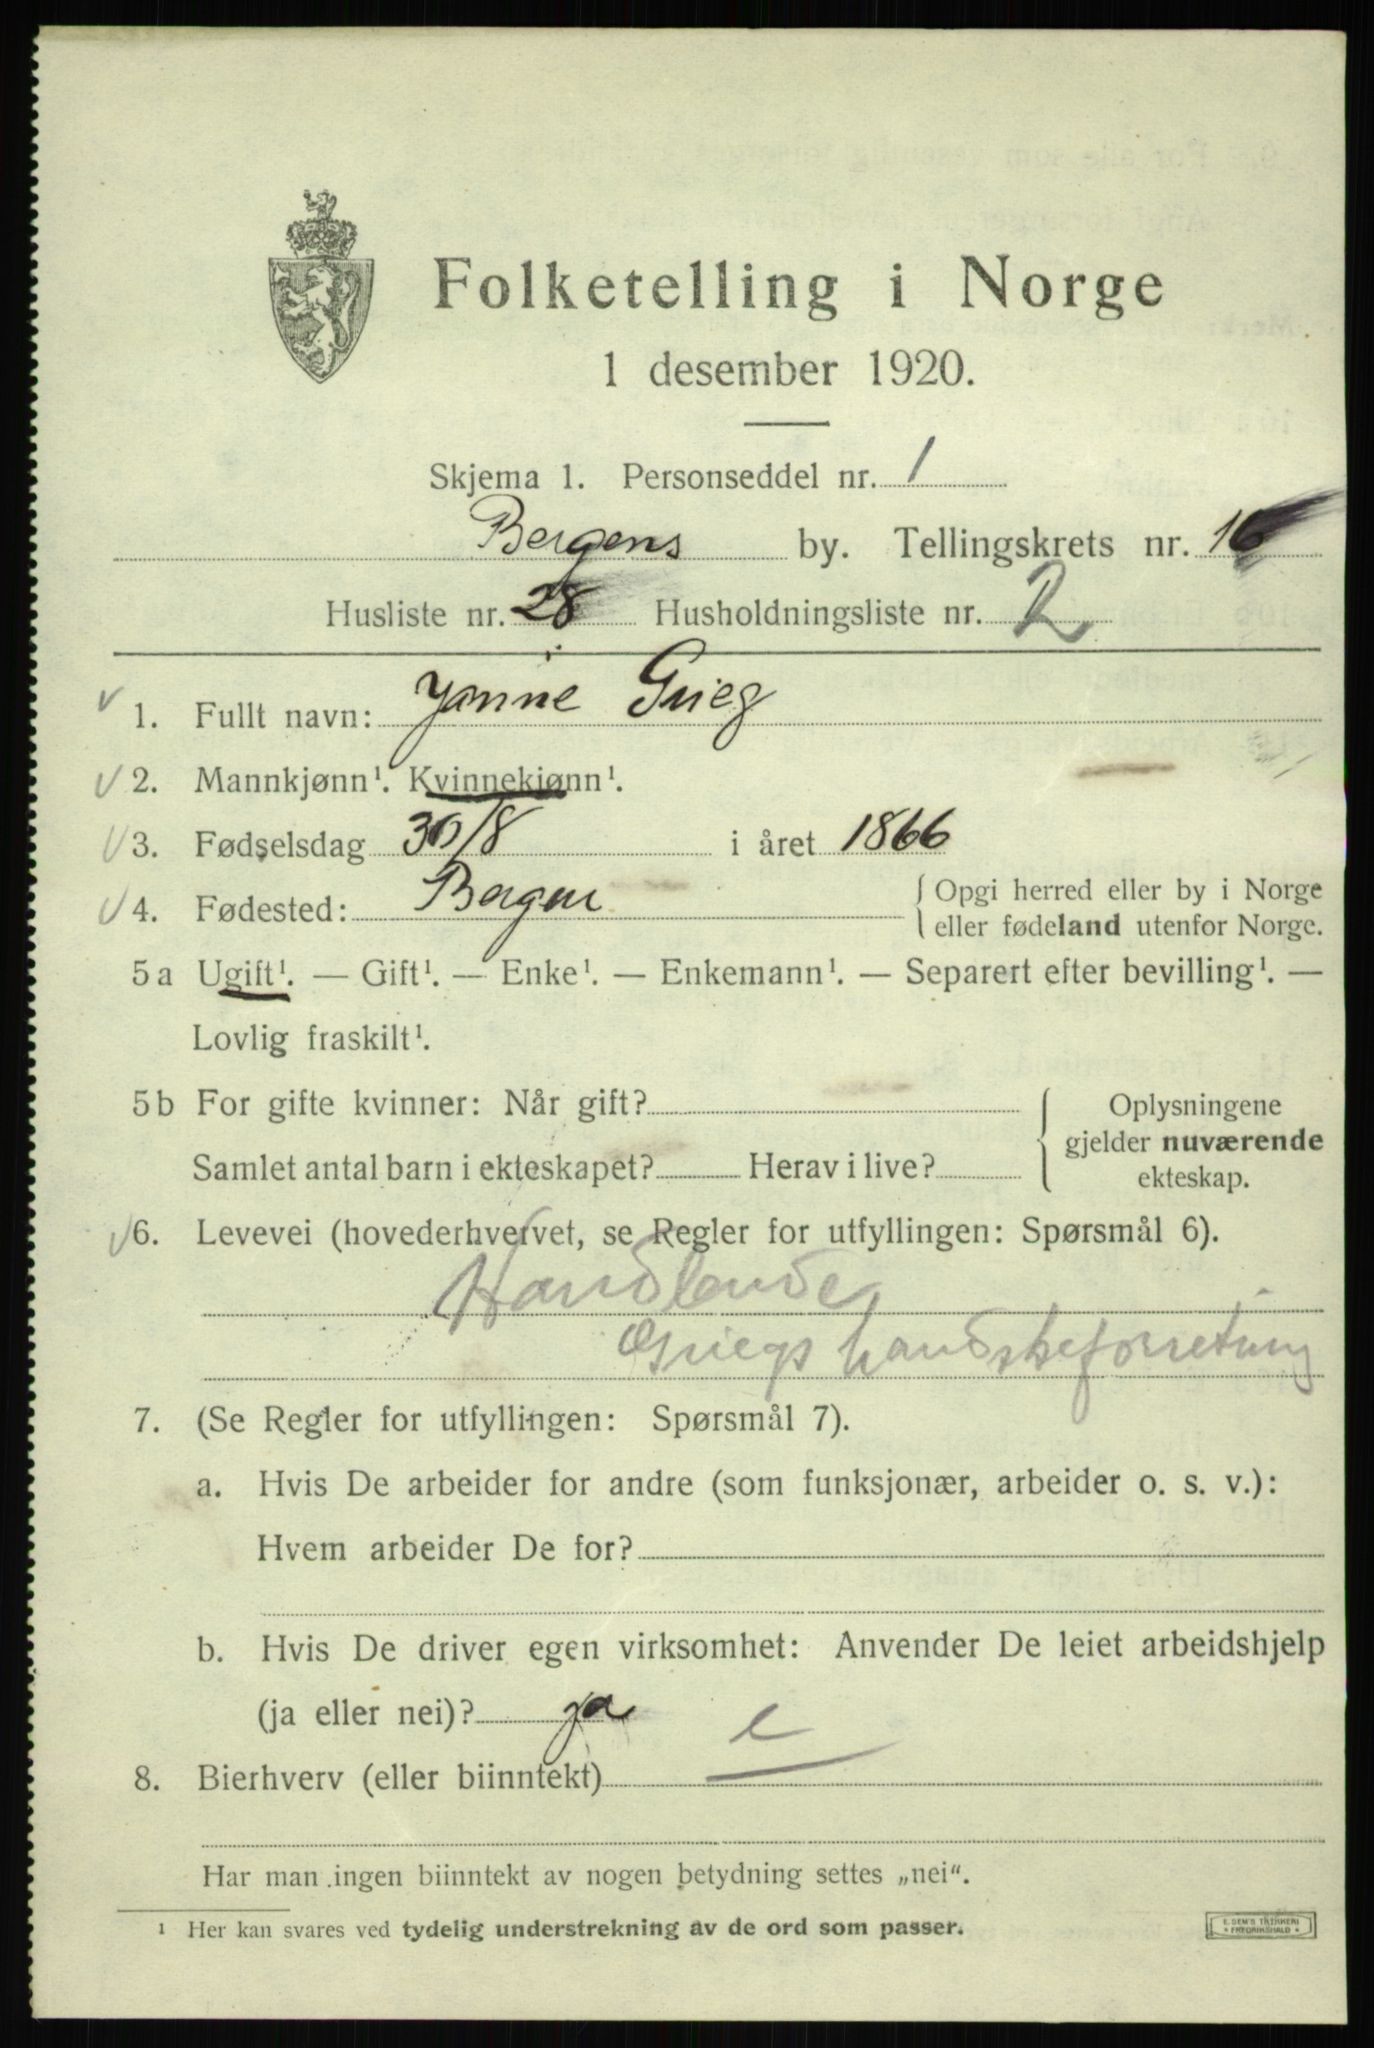 Folketelling i Norge
1 desember 1920.
Skjema 1. Personseddel nr. 1
Bergens by. Tellingskrets nr. 16
Husliste nr. 28 Husholdningsliste nr. 2
1. Fullt navn: Grieg
2. Mannkjønn¹. Kvinnekjønn¹.
3. Fødselsdag 30/8 i året 1866
4. Fødested: Bergen { Opgi herred eller by i Norge
eller fødeland utenfor Norge.
5a Ugift¹. — Gift¹. — Enke¹. — Enkemann¹. — Separert efter bevilling¹. —
Lovlig fraskilt¹.
5b For gifte kvinner: Når gift? { Oplysningene
gjelder nuværende
Samlet antal barn i ekteskapet? Herav i live? ekteskap.
6. Levevei (hovederhvervet, se Regler for utfyllingen: Spørsmål 6).
Handlende
Griegs handskeforretning
7. (Se Regler for utfyllingen: Spørsmål 7).
a. Hvis De arbeider for andre (som funksjonær, arbeider o. s. v.):
Hvem arbeider De for?
b. Hvis De driver egen virksomhet: Anvender De leiet arbeidshjelp
(ja eller nei)? ja e
8. Bierhverv (eller biinntekt)
Har man ingen biinntekt av nogen betydning settes „nei".
¹ Her kan svares ved tydelig understrekning av de ord som passer.
E. SEM'S TRYKKERI
* FREDRIKSHALD *